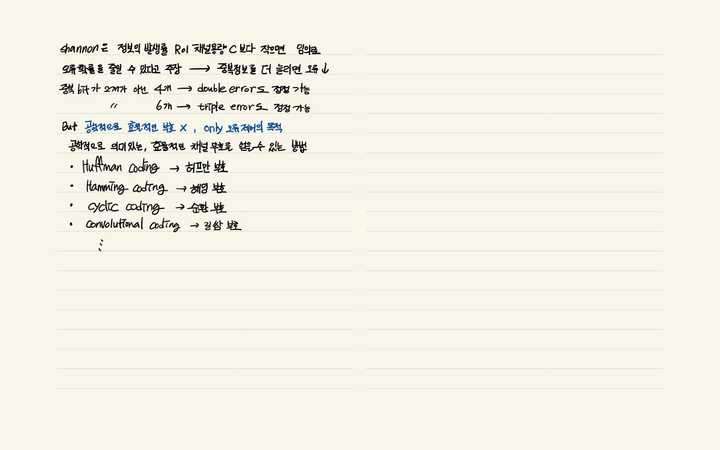 shannon은 정보의 발생률 R이 채널용량 C보다 작으면 임의로
오류확률을 줄일 수 있다고 주장 → 중복정보를 더 늘리면 오류↓
중복 bit가 2개가 아닌 4개 → double errors 정정 가능
〃 6개 → triple errors 정정 가능
But 공학적으로 효율적인 부호 X, only 오류제어의 목적
공학적으로 의미있는, 효율적인 채널 부호를 얻을 수 있는 방법
• Huffman coding → 허프만 부호
• Hamming coding → 해밍 부호
• cyclic coding → 순환 부호
• convolutional coding → 길쌈 부호
⋮